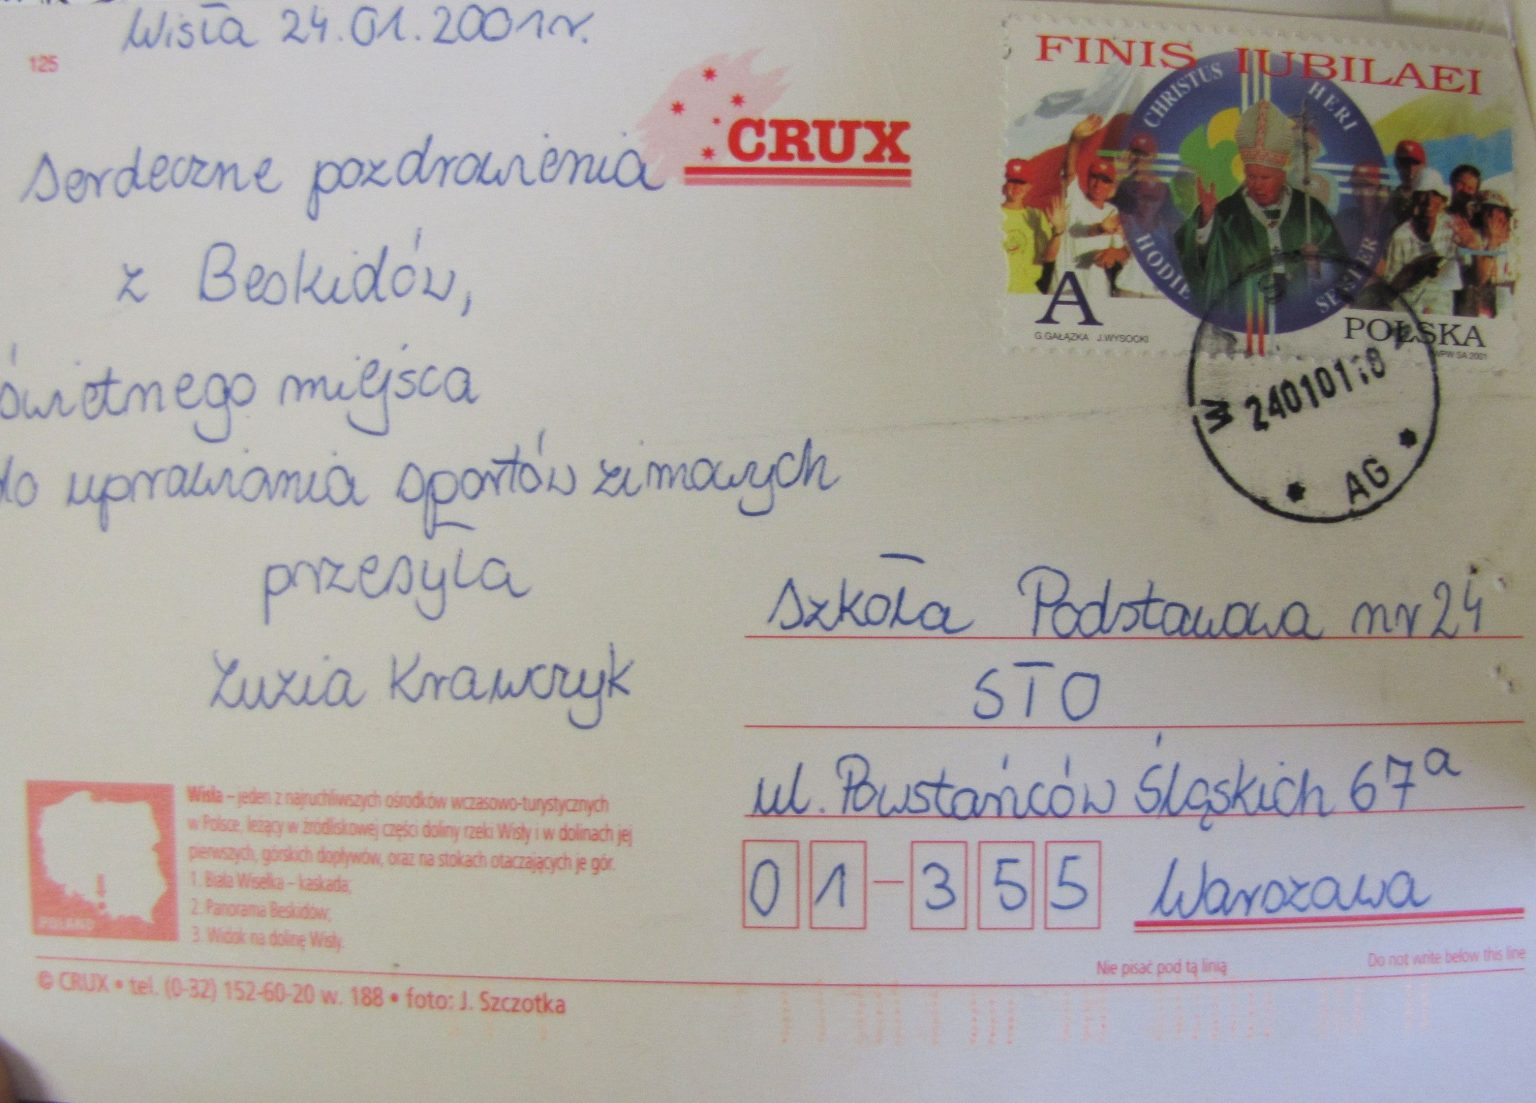 Wisła 24.01.2001r.
125
CRUX
Serdeczne pozdrowienia
z Beskidów,
świetnego miejsca
do uprawiania sportów zimowych
przesyła
Zuzia Krawczyk
FINIS IUBILAEI
CHRISTUS HERI
HODIE SEMPER
A
POLSKA
G.GAŁĄZKA J.WYSOCKI
PWPW SA 2001
W
240101
AG
Szkoła Podstawowa nr 24
STO
ul. Powstańców Śląskich 67a
01-355 Warszawa
Nie pisać pod tą linią
Do not write below this line
Wisła – jeden z najruchliwszych ośrodków wczasowo-turystycznych
w Polsce, leżący w źródliskowej części doliny rzeki Wisły i w dolinach jej
pierwszych, górskich dopływów, oraz na stokach otaczających je gór.
1. Biała Wisełka – kaskada;
2. Panorama Beskidów;
3. Widok na dolinę Wisły.
POLAND
© CRUX • tel. (0-32) 152-60-20 w. 188 • foto: J. Szczotka